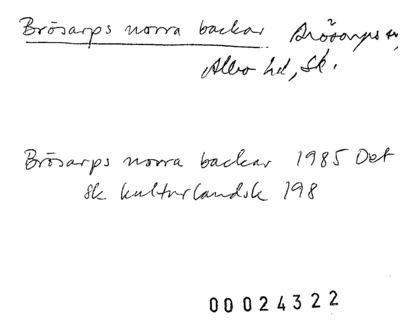 Brösarps norra backar Brösarps sn,
Albo hd, Sk.
Brösarps norra backar 1985 Det
sk kulturlandsk 198
00024322